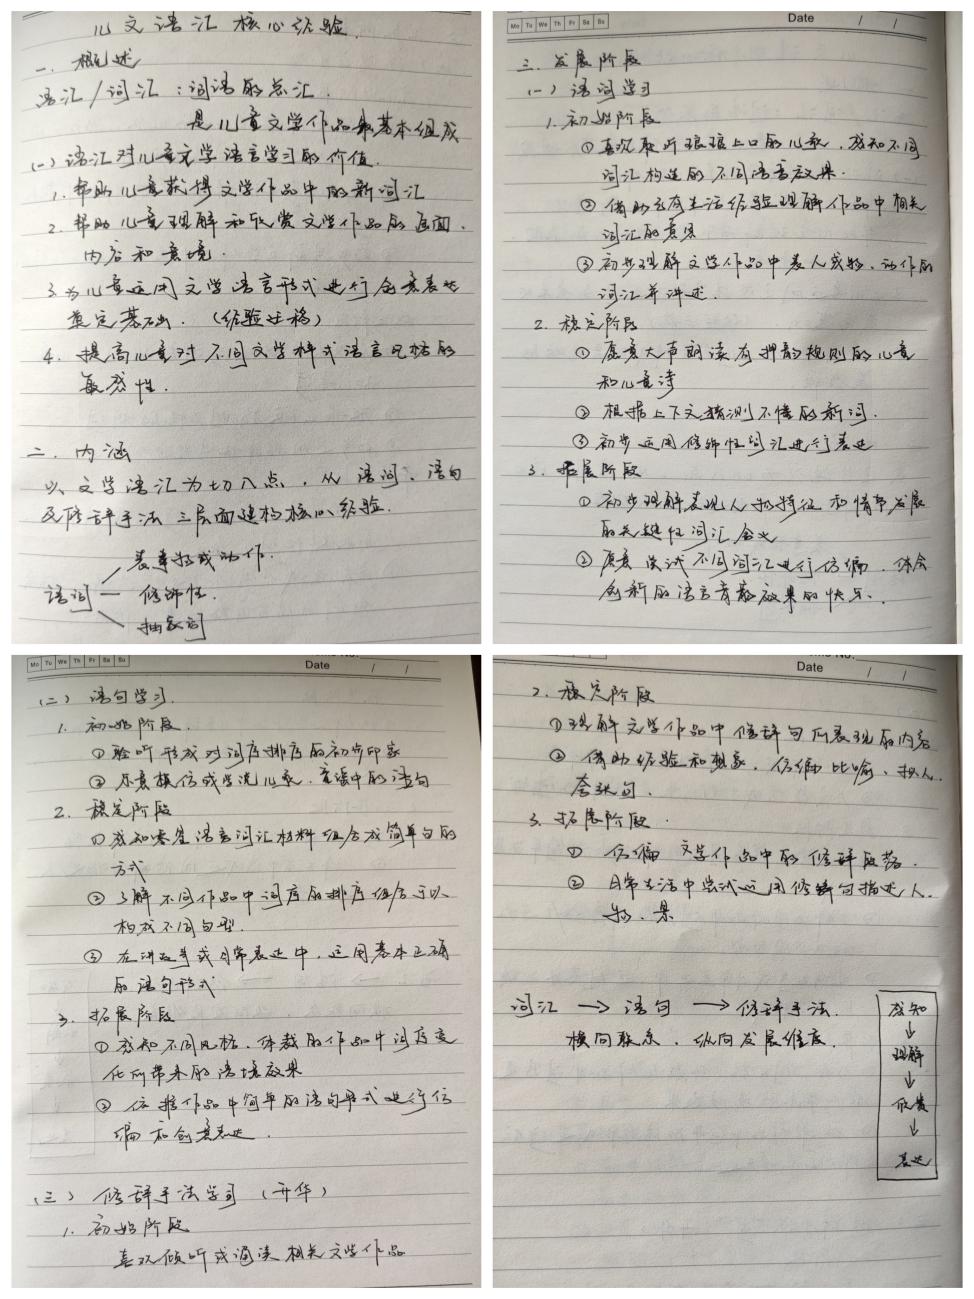 儿文语汇核心经验
一、概述
语汇/词汇：词语的总汇.
是儿童文学作品最基本组成
(一)语汇对儿童文学语言学习的价值.
1. 帮助儿童获得文学作品中的新词汇
2. 帮助儿童理解和欣赏文学作品的画面、
内容和意境.
3. 为儿童运用文学语言形式进行创意表达
奠定基础. (经验迁移)
4. 提高儿童对不同文学样式语言风格的
敏感性.
二、内涵
以文学语汇为切入点，从语词、语句
及修辞手法三层面建构核心经验.
表事物或动作.
语词 — 修饰性.
抽象词
Mo Tu We Th Fr Sa Su
Date / /
三、发展阶段
(一) 语词学习
1. 初始阶段
①喜欢聆听琅琅上口的儿歌，感知不同
词汇构造的不同语音效果.
②借助已有生活经验理解作品中相关
词汇的意思
③初步理解文学作品中表人或物、动作的
词汇并讲述.
2. 稳定阶段
①愿意大声朗读有押韵规则的儿童
和儿童诗
②根据上下文猜测不懂的新词.
③初步运用修饰性词汇进行表达
3. 拓展阶段
①初步理解表现人物特征和情节发展
的关键性词汇含义
②愿意尝试不同词汇进行仿编，体会
创新的语言音韵效果的快乐.
Mo Tu We Th Fr Sa Su
Date / /
(二) 语句学习.
1. 初始阶段.
①聆听形成对词序排序的初步印象
②乐意模仿或学说儿歌、童谣中的语句
2. 稳定阶段
①感知零星语言词汇材料组合成简单句的
方式
②了解不同作品中词序的排序组合可以
构成不同句型.
③在讲故事或日常表达中，运用基本正确
的语句形式
3. 拓展阶段
①感知不同风格、体裁的作品中词序变
化所带来的语境效果
②依据作品中简单的语句形式进行仿
编和创意表达.
(三) 修辞手法学习 (升华)
1. 初始阶段
喜欢倾听或诵读相关文学作品
Date / /
2. 稳定阶段
①理解文学作品中修辞句所表现的内容
②借助经验和想象，仿编比喻、拟人、
夸张句.
3. 拓展阶段.
①仿编文学作品中的修辞段落.
②日常生活中尝试运用修辞句描述人、
物、景
词汇 → 语句 → 修辞手法.
横向联系、纵向发展维度.
感知
↓
理解
↓
欣赏
↓
表达